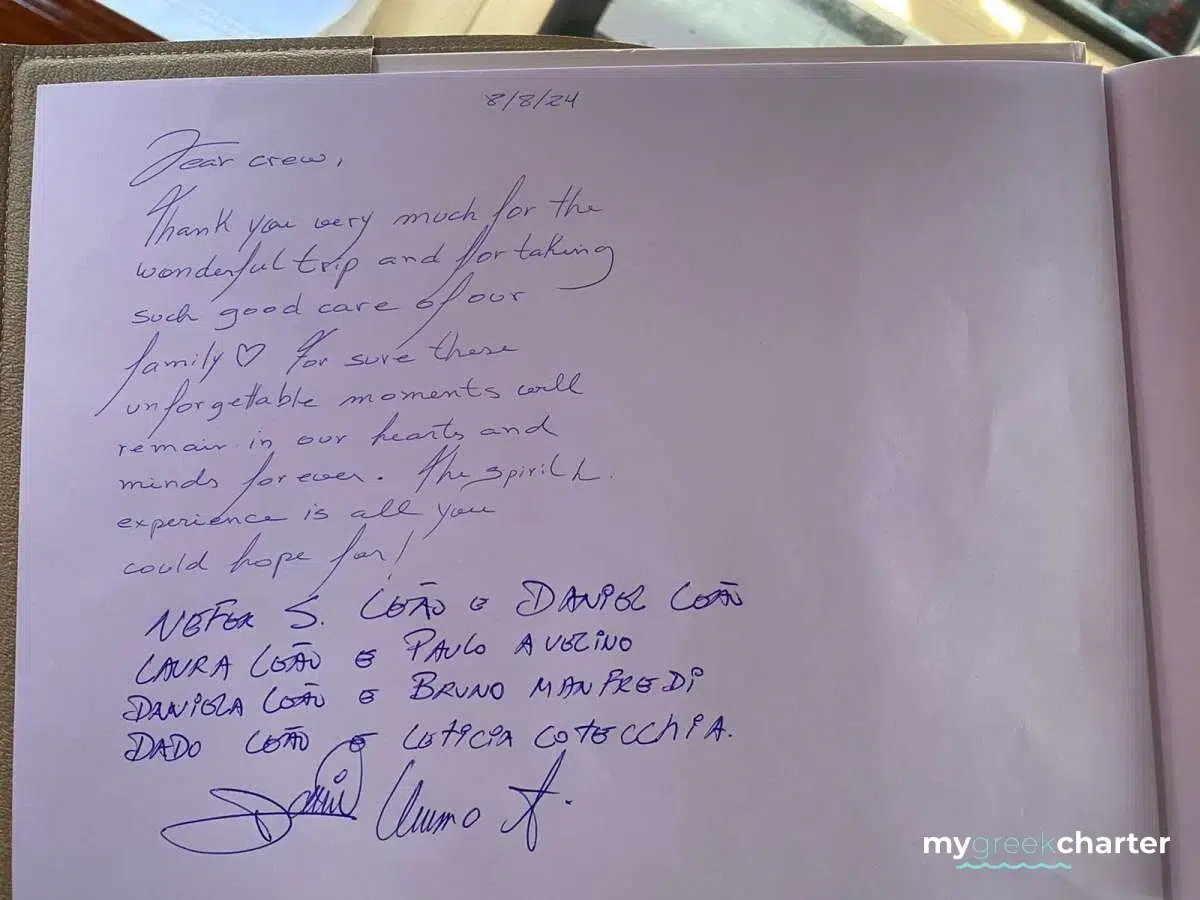 8/8/24
Dear crew,
Thank you very much for the
wonderful trip and for taking
such good care of our
family ♡ For sure these
unforgettable moments will
remain in our hearts and
minds forever. The spirit
experience is all you
could hope for!
NEFER S. LEÃO E DANIEL LEÃO
LAURA LEÃO E PAULO AVELINO
DANIELA LEÃO E BRUNO MANFREDI
DADO LEÃO E LETICIA COTECCHIA.
mygreekcharter